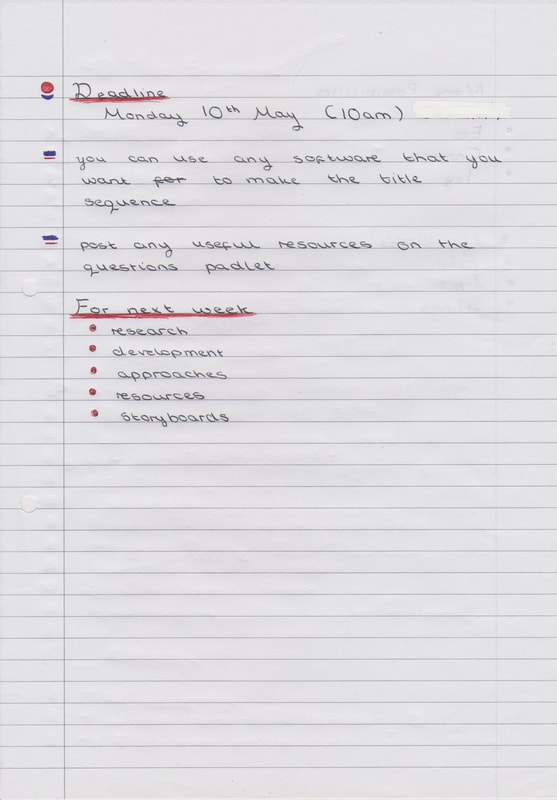 Deadline
Monday 10th May (10am)
you can use any software that you
want for to make the title
sequence
post any useful resources on the
questions padlet
For next week
research
development
approaches
resources
storyboards